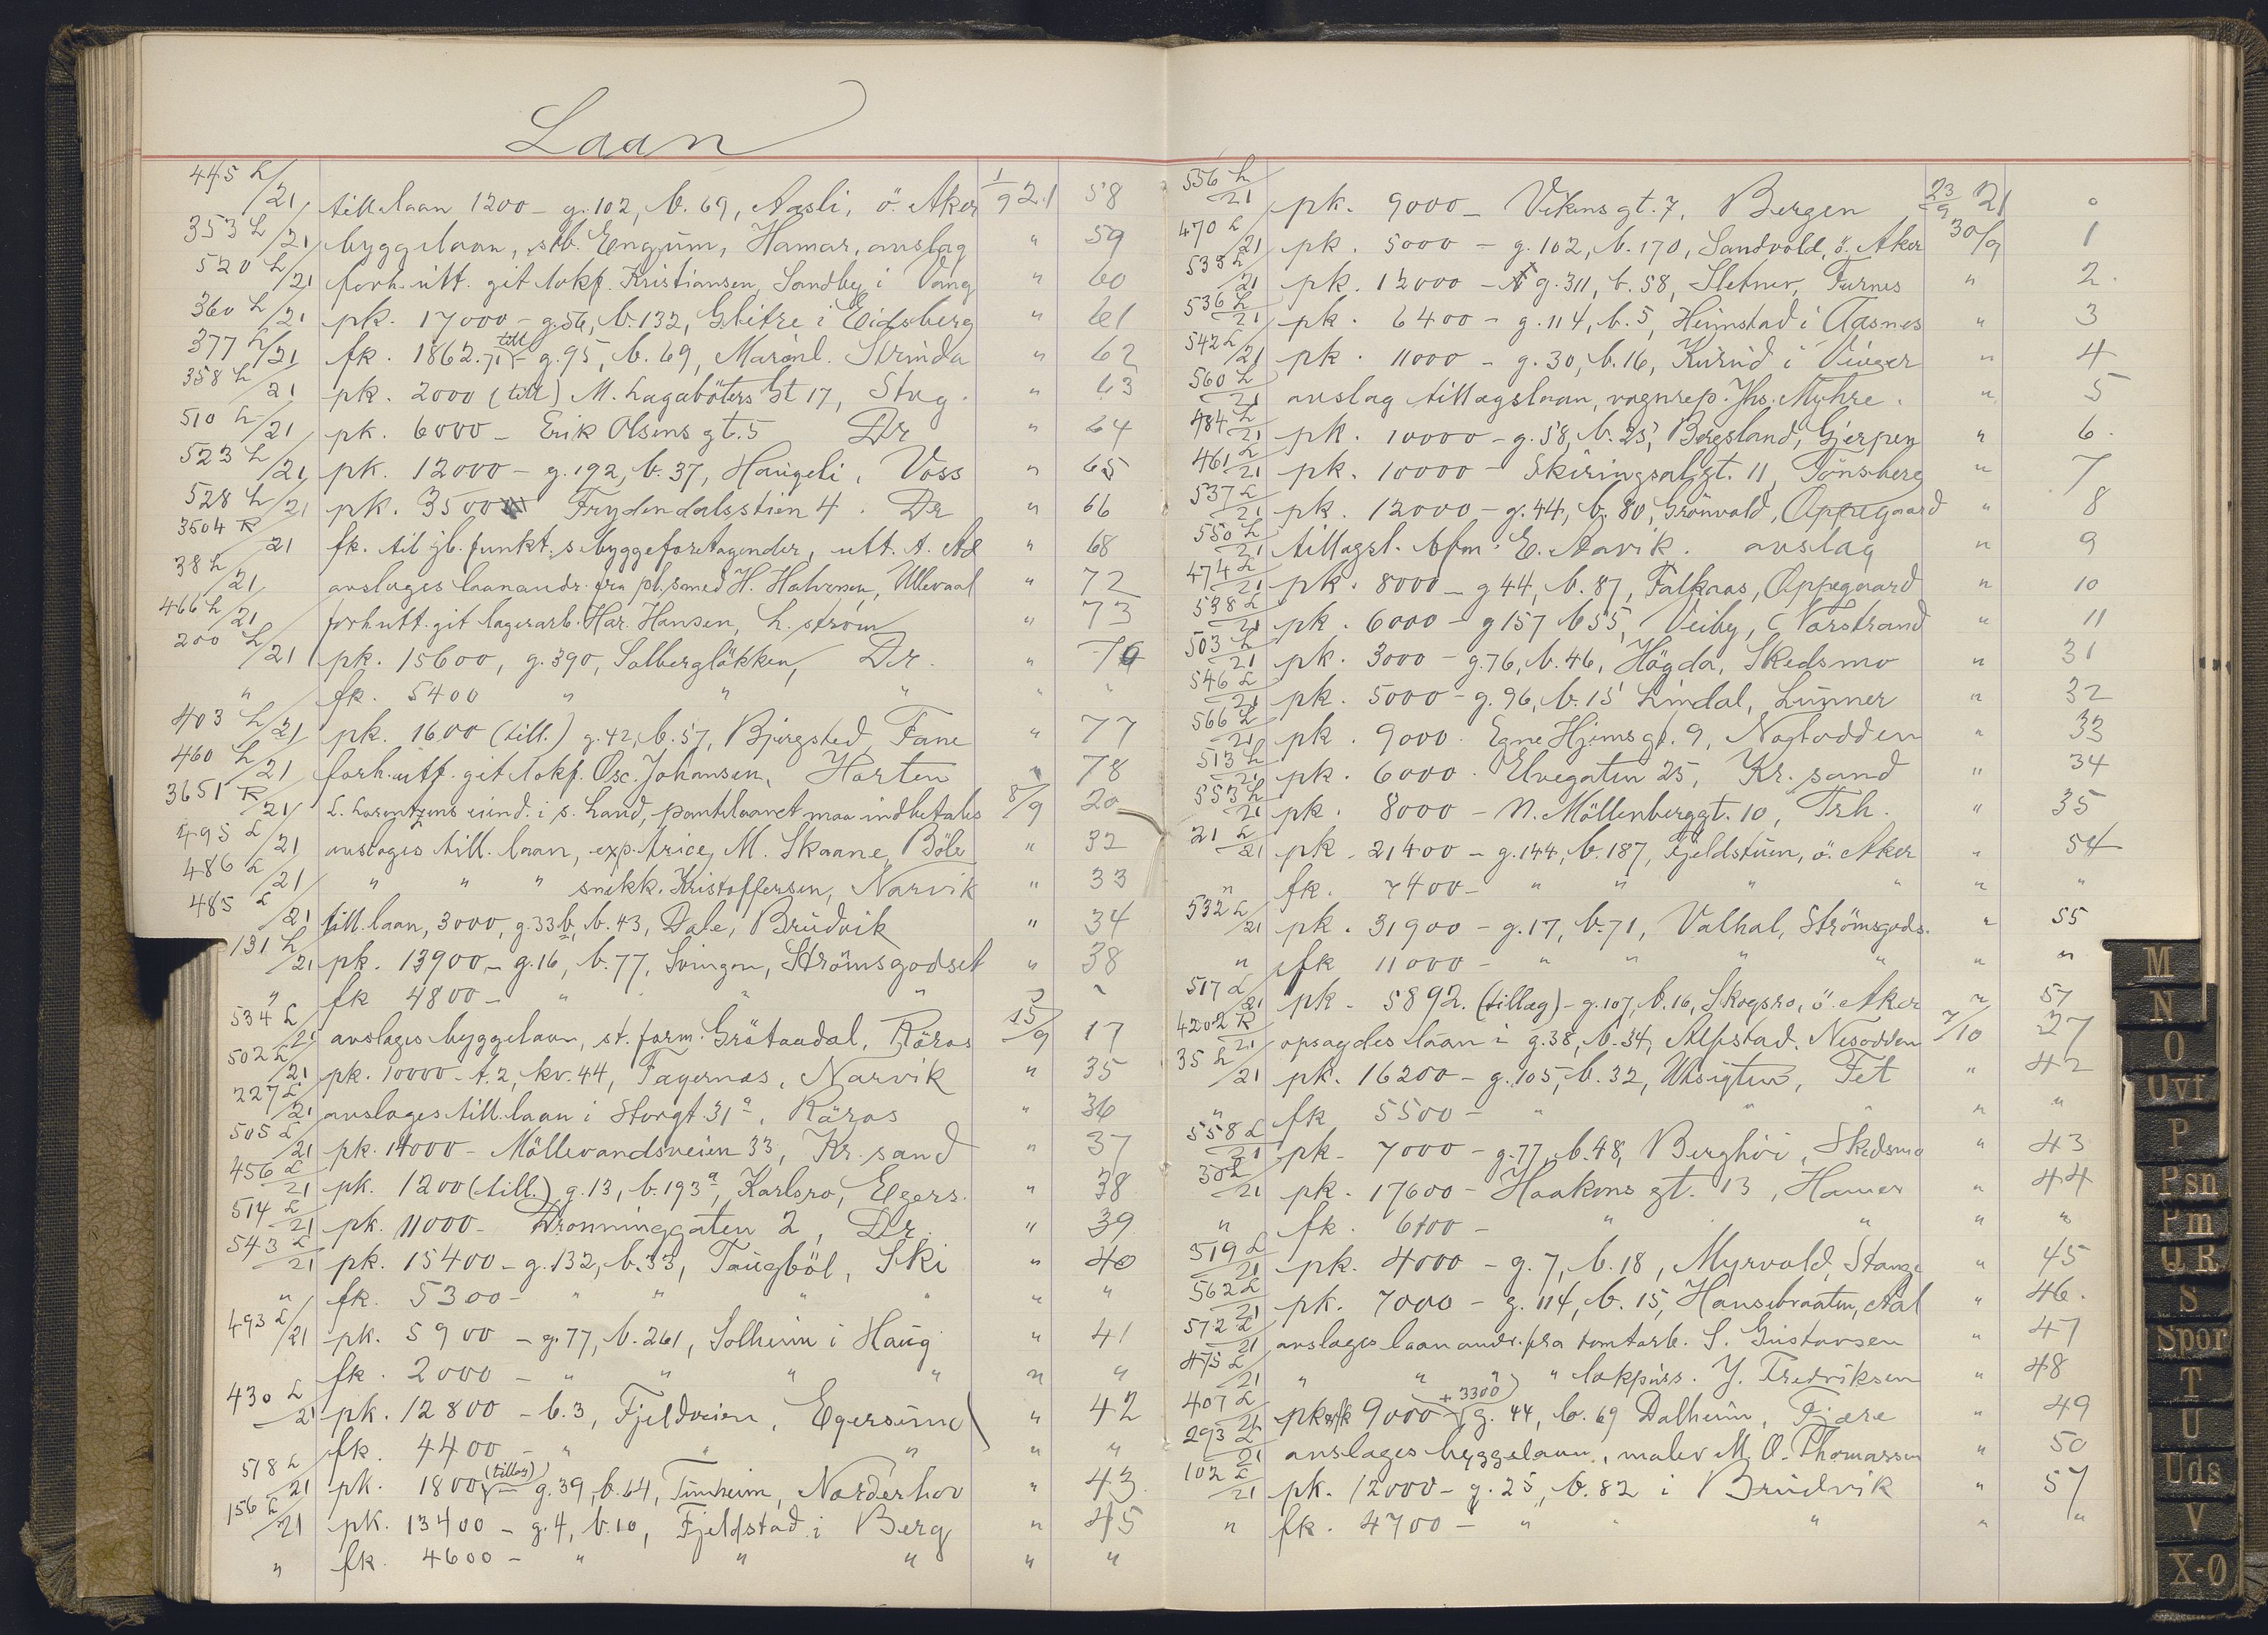 Laan
445 L/21 till.laan 1200 - g. 102, b. 69, Aasli, ö. Aker 1/9 21 58
353 L/21 byggelaan, stb. Engum, Hamar, avslag " 59
520 L/21 forh. utt. git lokf. Kristiansen, Sandby i Vang " 60
360 L/21 pk. 17000 - g. 56, b. 132, i Eidsberg " 61
377 L/21 fk. 1862.71 till - g. 95, b. 69, Marienl. Strinda " 62
358 L/21 pk. 2000 (till) M. Lagabøters Gt 17, Stvg. " 63
510 L/21 pk. 6000 - Erik Olsens gt. 5 Dr " 64
523 L/21 pk. 12000 - g. 192, b. 37, Haugeli, Voss " 65
528 L/21 pk. 3500 Frydendalsstien 4. Dr " 66
3504 R/21 fk. til jb. funkt.s byggeforetagender, utt. A. Ad " 68
38 L/21 avslages laanandr. fra pl. smed H. Halvorsen, Ullevaal " 72
466 L/21 forh. utt. git lagerarb. Har. Hansen, L. strøm " 73
200 L/21 pk. 15600, g. 390, Solbergløkken, Dr. " 76
" fk. 5400 " " " " "
403 L/21 pk. 1600 (till.) g. 42, b. 57, Bjergsted, Fane " 77
460 L/21 forh. utt. git lokf. Osc. Johansen, Horten " 78
3651 R/21 L. Lorentzens eiend. i s. Land, pantelaanet maa indbetales 8/9 20
495 L/21 avslages till. laan, exp.trice, M. Skaane, Böle " 32
486 L/21 " " " snekk. Kristoffersen, Narvik " 33
485 L/21 till. laan, 3000, g. 33b, b. 43, Dale, Brudvik " 34
131 L/21 pk. 13900 - g. 16, b. 77, Svingen, Strömsgodset " 38
" fk 4800 - " " " " "
534 L/21 avslages byggelaan, st. form. Grötaadal, Röros 15/9 17
502 L/21 pk. 10000 - t. 2, kv. 44, Fagernæs, Narvik " 35
227 L/21 avslages till. laan i Storgt 31a, Röros " 36
505 L/21 pk. 14000 - Möllevandsveien 33, Kr. sand " 37
456 L/21 pk. 1200 (till.) g. 13, b. 193a, Karlsro, Egers. " 38
514 L/21 pk. 11000 - Dronninggaten 2, Dr. " 39
543 L/21 pk. 15400 - g. 132, b. 33, Taugböl, Ski " 40
" fk. 5300 - " " " " " "
493 L/21 pk. 5900 - g. 77, b. 261, Solheim i Haug " 41
fk. 2000 - " " " " " "
430 L/21 pk. 12800 - b. 3, Fjeldveien, Egersund " 42
fk. 4400 - " " " " "
578 L/21 pk. 1800 (tillæg) - g. 39, b. 64, Timheim, Norderhov " 43
156 L/21 pk. 13400 - g. 4, b. 10, Fjeldstad i Berg " 45
" fk. 4600 - " " " " "
556 L/21 pk. 9000 - Vikens gt. 7, Bergen 23/9 21 0
470 L/21 pk. 5000 - g. 102, b. 170, Sandvold, ö. Aker 30/9 1
533 L/21 pk. 12000 - g. 311, b. 58, Sletner, Furnes " 2.
536 L/21 pk. 6400 - g. 114, b. 5, Heimstad i Aasnes " 3
542 L/21 pk. 11000 - g. 30, b. 16, i Vinger " 4
560 L/21 avslag tillægslaan, vognrep. Jhs. Myhre. " 5
484 L/21 pk. 10000 - g. 58, b. 25, Bergsland, Gjerpen " 6.
461 L/21 pk. 10000 - Skiringsalgt. 11, Tönsberg " 7
537 L/21 pk. 12000 - g. 44, b. 80, Grönvold, Oppegaard " 8
550 L/21 tillægsl. bfm. E. Aavik. avslag " 9
474 L/21 pk. 8000 - g 44, b. 87, Falknæs, Oppegaard " 10
538 L/21 pk. 6000 - g 157 b 55, Veiby, Norstrand " 11
503 L/21 pk. 3000 - g. 76, b. 46, Högda, Skedsmo " 31
546 L/21 pk. 5000 - g. 96, b. 15 Lindal, Lunner " 32
566 L/21 pk. 9000 - Egne Hjems gt. 9, Notodden " 33
513 L/21 pk. 6000 - Elvegaten 25, Kr. sand " 34
553 L/21 pk. 8000 - N. Möllenberggt. 10, Trh. " 35
21 L/21 pk. 21400 - g. 144, b. 187, Fjeldstuen, ö. Aker " 54
" fk. 7400 - " " " " " "
532 L/21 pk. 31900 - g. 17, b. 71, Valhal, Strömsgods. " 55
" fk 11000 - " " " " " "
517 L/21 pk - 5892. (tillæg) - g. 107, b. 16, Skogsro, ö. Aker " 57
4202 R/21 opsagdes laan i g. 38, b. 34, Alfstad, Nesodden 7/10 27
35 L/21 pk. 16200 - g. 105, b. 32, Utsigten, Fet " 42
" fk 5500 - " " " " "
558 L/21 pk - 7000 - g. 77, b. 48, Berghöi, Skedsmo " 43
38 L/21 pk. 17600 - Haakons gt. 13, Hamar " 44
" fk. 6100 - " " " "
519 L/21 pk. 4000 - g. 7, b. 18, Myrvold, Stange " 45
562 L/21 pk. 7000 - g. 114, b. 15, Hansebraaten, Aal " 46.
572 L/21 avslages laanandr. fra tomtarb. S. Gustavsen " 47
475 L/21 " " " " lokpuss. Y. Fredriksen " 48
407 L/21 pk 9000 + 3300 g. 44, b. 69 Dalheim, Fjære " 49
293 L/21 avslages byggelaan, maler M. O. Thomassen " 50
102 L/21 pk. 12000 - g. 25, b. 82 i Brudvik " 57
" fk. 4700 - " " " " "
M
N
O
Ovf
P
Psn
Pm
Q R
S
Spor
T
U
Uds
V
X-Ø